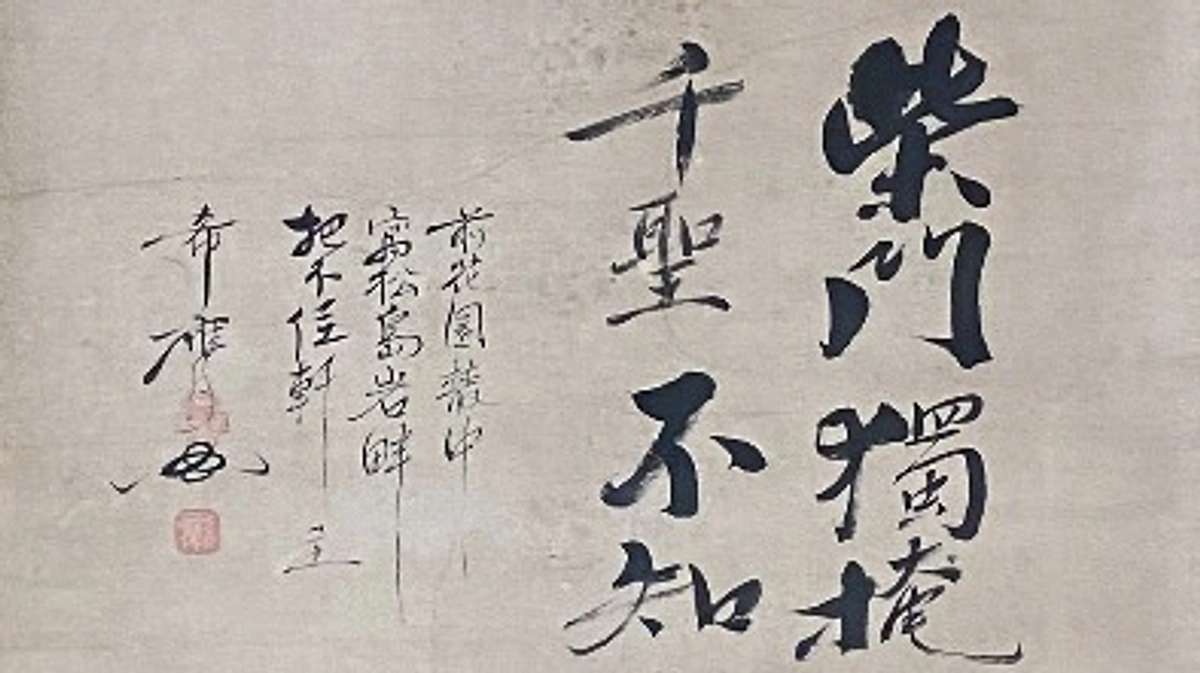 柴門獨掩
千聖不知
前花園叢中
寓松島岩畔
把不住軒主
希膺